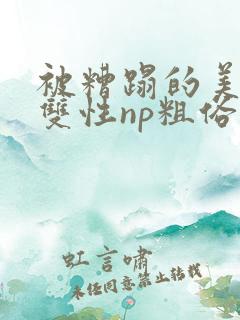 被糟蹋的美
雙性np粗俗
虹言嘯
未经同意禁止转载